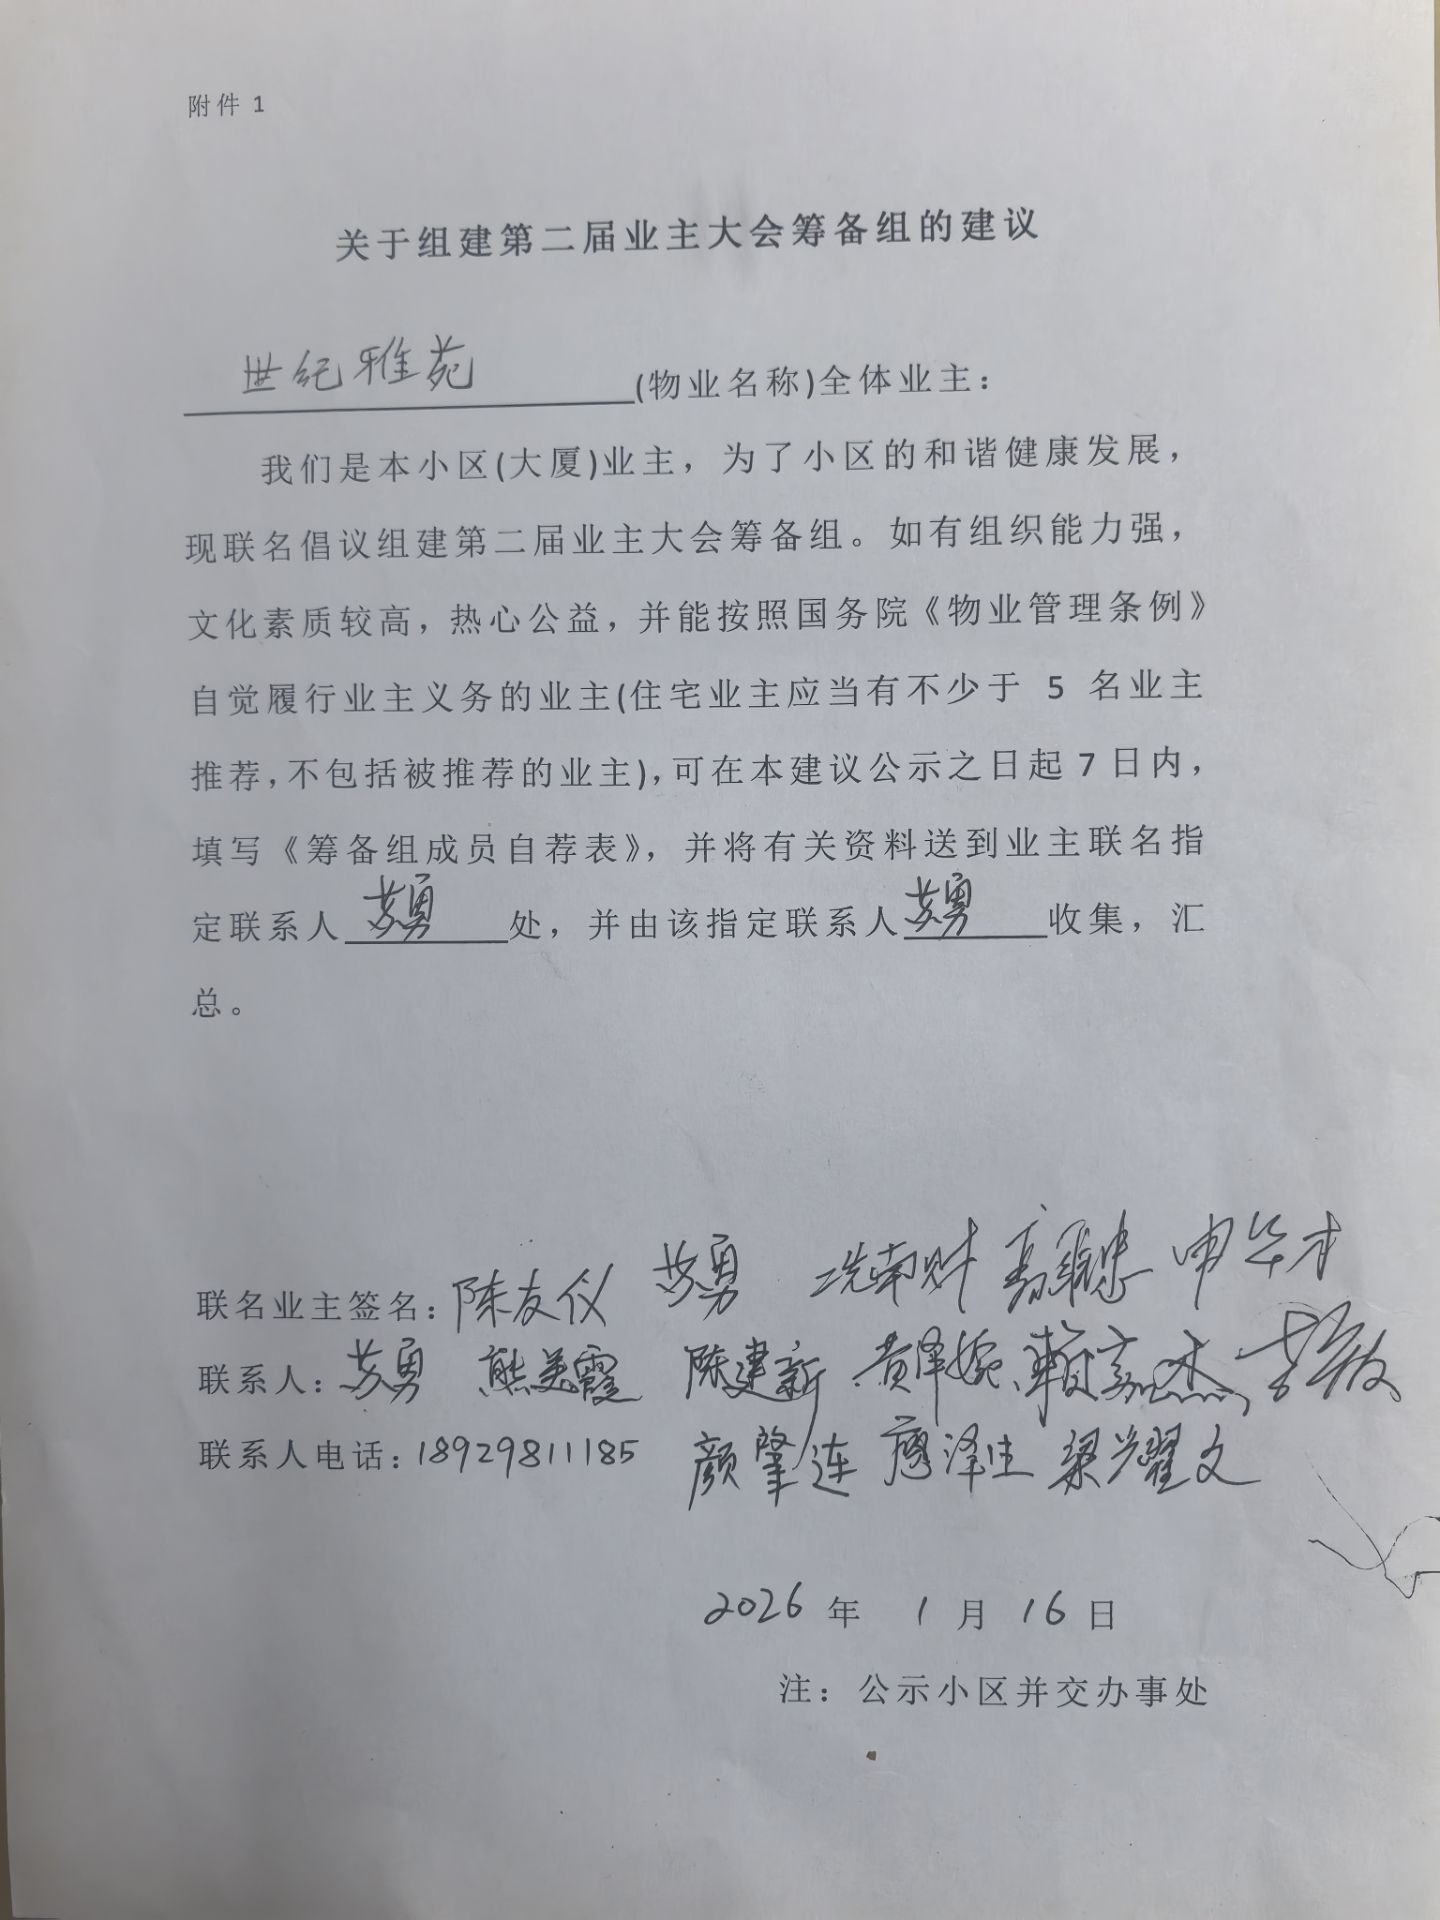 附件 1
关于组建第二届业主大会筹备组的建议
世纪雅苑(物业名称)全体业主：
我们是本小区(大厦)业主，为了小区的和谐健康发展，
现联名倡议组建第二届业主大会筹备组。如有组织能力强，
文化素质较高，热心公益，并能按照国务院《物业管理条例》
自觉履行业主义务的业主(住宅业主应当有不少于 5 名业主
推荐，不包括被推荐的业主)，可在本建议公示之日起 7 日内，
填写《筹备组成员自荐表》，并将有关资料送到业主联名指
定联系人苏勇处，并由该指定联系人苏勇收集，汇
总。
联名业主签名：陈友仪 苏勇 冼南财 申华才
联系人：苏勇 熊美霞 陈建新 黄泽婉
联系人电话：18929811185 颜肇连 廖泽生 梁耀文
2026 年 1 月 16 日
注：公示小区并交办事处